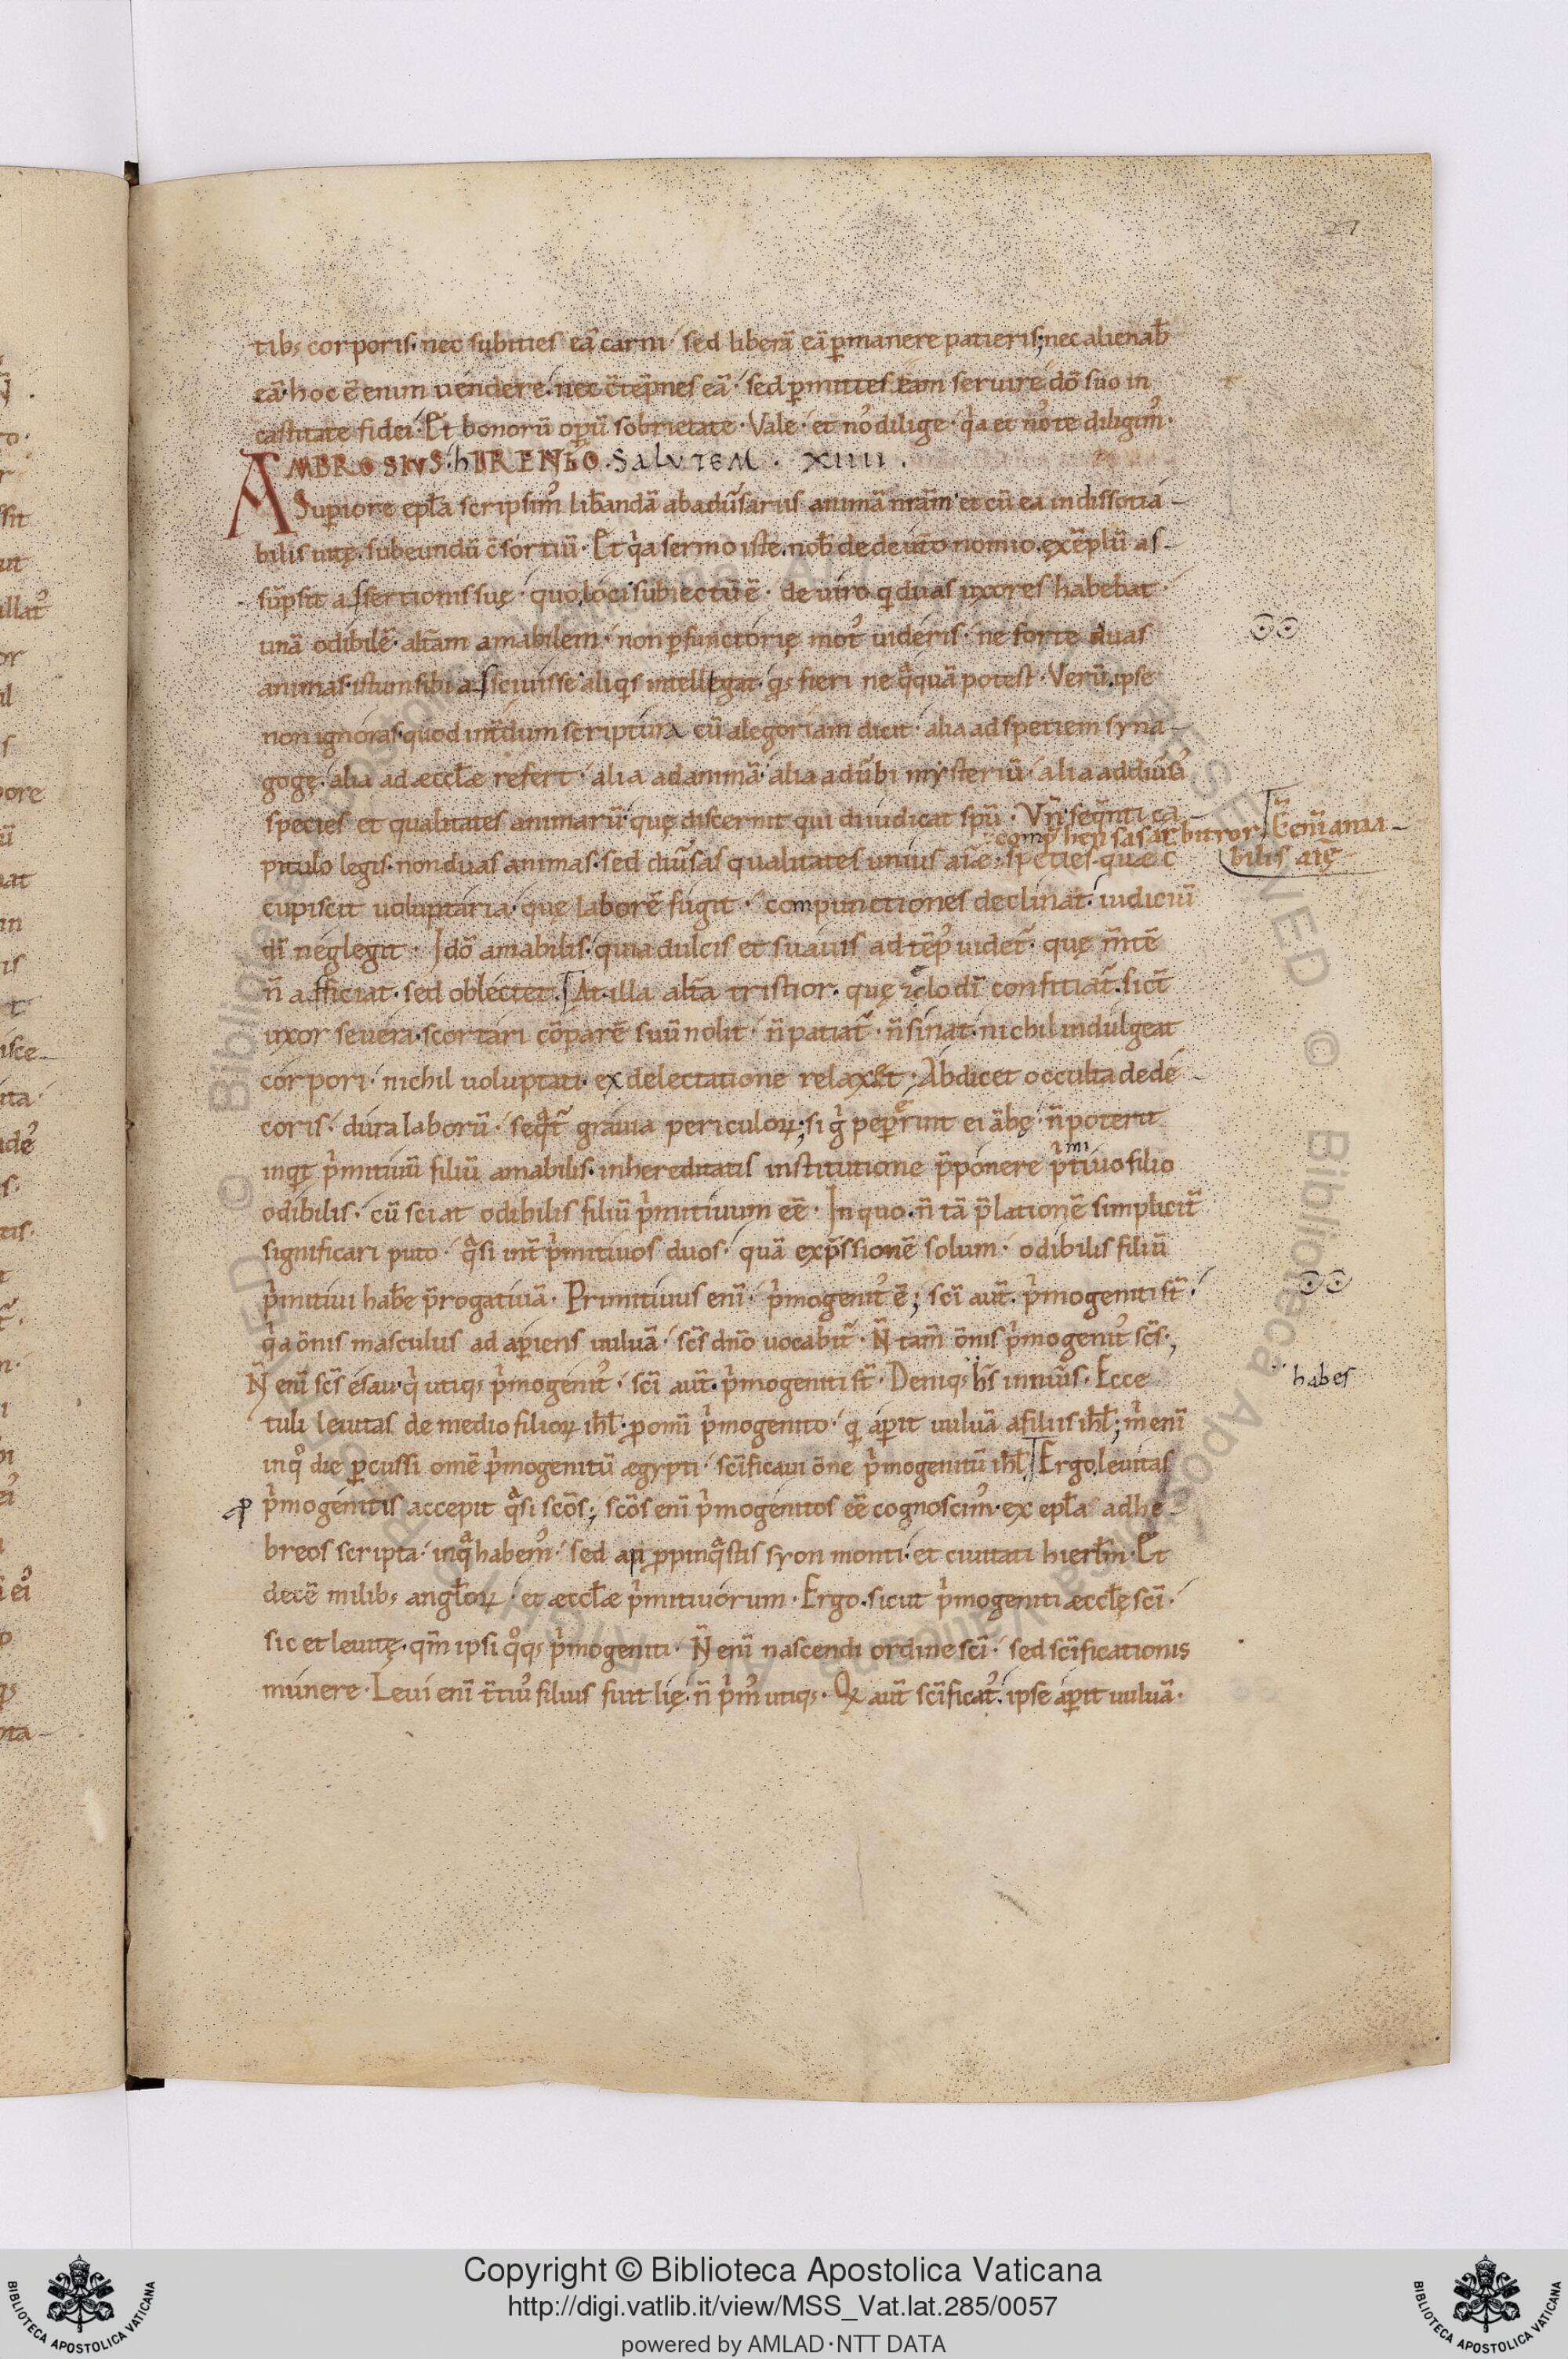 27
tib; corporis· nec subities eā carni· sed liberā eā ꝑmanere patieris; nec alienab̄
eā· hoc ē enim uendere· nec c̄tēpnes eā· sed ꝑmittes eam seruire dō suo in
castitate fidei· Et bonorū oꝑū sobrietate· Vale· et nos̄ dilige· qa et nos̄ te diligim᾽·
AMBROSIVS· hIRENEO· SALVTEM· XIIII·
Suꝑiore epl̄a scripsim᾽ lib̄andā ab aduersariis animā nrām· et cū ea indissotia-
bilis uitę· subeundū c̄sortiū· Et qa sermo iste· nob̄ de deut̄onomio· exēplū as-
sūpsit assertionis suę· quo loci subiectū ē· de uiro q duas uxores habebat·
unā odibilē· alt̄am amabilem· non ꝑfunctorię mot᾽ uideris· ne forte duas
animas· istum sibi assciuisse aliqis intellegat· qđ fieri ne qquā potest· Verū ipse
non ignoras· quod int̄dum scriptura cū alegoriam dicit· alia ad spetiem syna-
gogę· alia ad æccl̄æ refert· alia ad animā· alia ad ūbi mysteriū· alia ad diūsas
species et qualitates animarū· quę discernit qui diiudicat spū· Vn̄· seqnti ca-
comp̄hensas arbitror
Ē enī ama-
bilis aīę
pitulo legis· non duas animas· sed diūsas qualitates unius aīæ· speties· quæ c̄
cupiscit uoluptaria· quę laborē fugit· compunctiones declinat· iudiciū
dī neglegit· Idō amabilis· quia dulcis et suauis ad tēp᾽ uidet̄· quę mn̄tē
n̄ afficiat· sed oblectet· At illa alt̄a tristior· quę zelo dī confitiat̄· sict̄
uxor seuera· scortari cōparē suū nolit· n̄ patiat̄· n̄ sinat· nichil indulgeat
corpori· nichil uoluptati· ex delectatione relaxet· Abdicet occulta dede-
coris· dura laborū· seqt̄ grauia periculoꝝ; si g peꝑerint ei ābę· n̄ poterit
inqt pmitiuū filiū amabilis· in hereditatis institutione p̄ponere pmitiuo filio
odibilis· cū sciat odibilis filiū pmitiuum eē· In quo· n̄ tā p̄lationē simplicit̄
significari puto· qsi int̄ pmitiuos duos· quā exp̄ssionē solum· odibilis filiū
pmitiui habe p̄rogatiuā· Primitiuus enī· pmogenit᾽ ē; sc̄i aut̄· pmogeniti st̄·
qa ōnis masculus ad aꝑiens uuluā· sc̄s dn̄o uocabit̄· N̄ tam̄ ōnis pmogenit᾽ sc̄s;
N̄ enī sc̄s esau· q utiq; pmogenit᾽· sc̄i aut̄· pmogeniti st̄· Deniq; hs̄ in nūs· Ecce
habes
tuli leuitas de medio filioꝝ ih̄l· ꝓ omī pmogenito· q aꝑit uuluā a filiis ih̄l; m̄ enī
inq die ꝑcussi omē pmogenitū ægypti· sc̄ificaui ōne pmogenitū ih̄l· Ergo leuitas
ꝓ pmogenitis accepit qsi sc̄os; sc̄os enī pmogenitos eē cognoscim᾽· ex epl̄a ad he-
breos scripta· inq habem᾽· sed ap ꝓpinqstis syon monti· et ciuitati hierl̄m· Et
decē milib; angl̄oꝝ· et æccl̄æ pmitiuorum· Ergo· sicut pmogeniti æccl̄ę sc̄i·
sic et leuitę· qm̄ ipsi qq; pmogeniti· N̄ enī nascendi ordine sc̄i· sed sc̄ificationis
munere· Leui enī t̄tiu᾽ filius fuit lię· n̄ pm᾽ utiq;· Qđ aut̄ sc̄ificat᾽· ipse aꝑit uuluā·
Copyright © Biblioteca Apostolica Vaticana
http://digi.vatlib.it/view/MSS_Vat.lat.285/0057
powered by AMLAD·NTT DATA
BIBLIOTECA APOSTOLICA VATICANA
BIBLIOTECA APOSTOLICA VATICANA